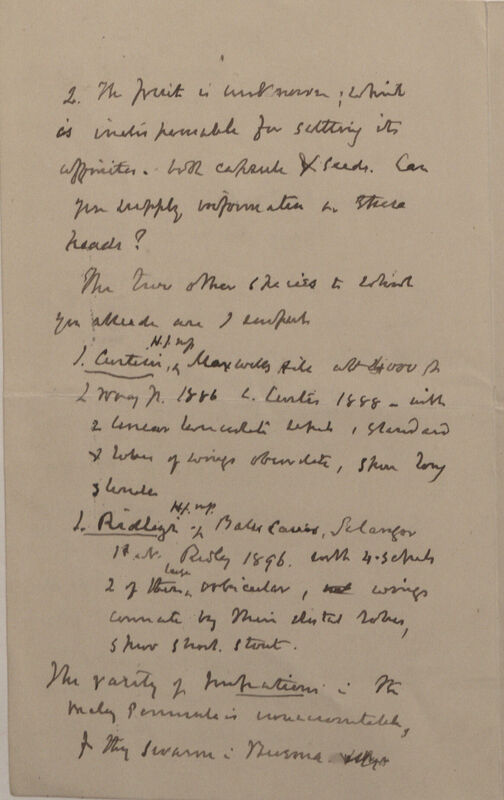 2. The fruit is unknown; which
is indispensable for settling its
affinities. both capsule & seeds. Can
you supply information on these
heads?
The two other species to which
you allude are I suspect
I. Curtisii, H.f. mp of Maxwells Hile alt 4000 ft
L Wray Jr. 1886 C. Curtis 1888 – with
2 linear lanceolate sepals, standard
& lobes of wings obcordate, spur long
slender
I. Ridleyi H.f. mp. of Batu Caves, Selangor
H.N. Ridley 1896. with 4-sepals
2 of them large orbicular, wings
connate by their distal lobes,
spur short. stout.
The rarity of Impatiens in the
Malay Peninsula is unaccountable,
they swarm in Burma